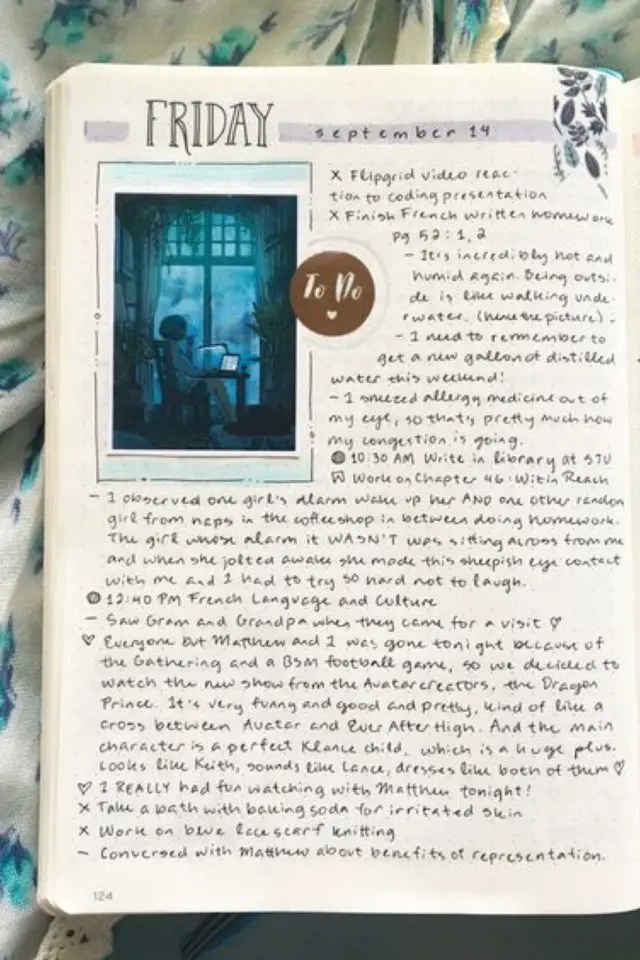 FRIDAY
september 14
X Flipgrid video reac-
tion to coding presentation
X Finish French written homework
pg 52: 1, 2
- It's incredibly hot and
humid again. Being outsi-
de is like walking unde-
rwater. (hence the picture).
To Do
- I need to remember to
get a new gallon of distilled
water this weekend!
- I sneezed allergy medicine out of
my eye, so that's pretty much how
my congestion is going.
10:30 AM Write in library at STU
Work on Chapter 46: Within Reach
- I observed one girl's alarm wake up her AND one other random
girl from naps in the coffeeshop in between doing homework.
The girl whose alarm it WASN'T was sitting across from me
and when she jolted awake she made this sheepish eye contact
with me and I had to try so hard not to laugh.
12:40 PM French Language and Culture
- Saw Gram and Grandpa when they came for a visit ♡
♡ Everyone but Matthew and I was gone tonight because of
the Gathering and a BSM football game, so we decided to
watch the new show from the Avatar creators, the Dragon
Prince. It's very funny and good and pretty, kind of like a
cross between Avatar and Ever After High. And the main
character is a perfect Klance child, which is a huge plus.
Looks like Keith, sounds like Lance, dresses like both of them ♡
♡ I REALLY had fun watching with Matthew tonight!
X Take a bath with baking soda for irritated skin
X Work on blue lace scarf knitting
- Conversed with Matthew about benefits of representation.
124